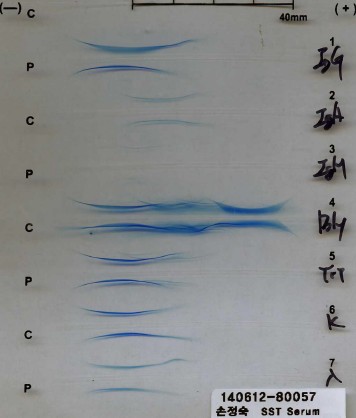 (—) C (+)
40mm
1
IgG
P
2
IgA
C
3
IgM
P
4
Poly
C
5
Tri
P
6
K
C
7
λ
P
140612-80057
손정숙 SST Serum